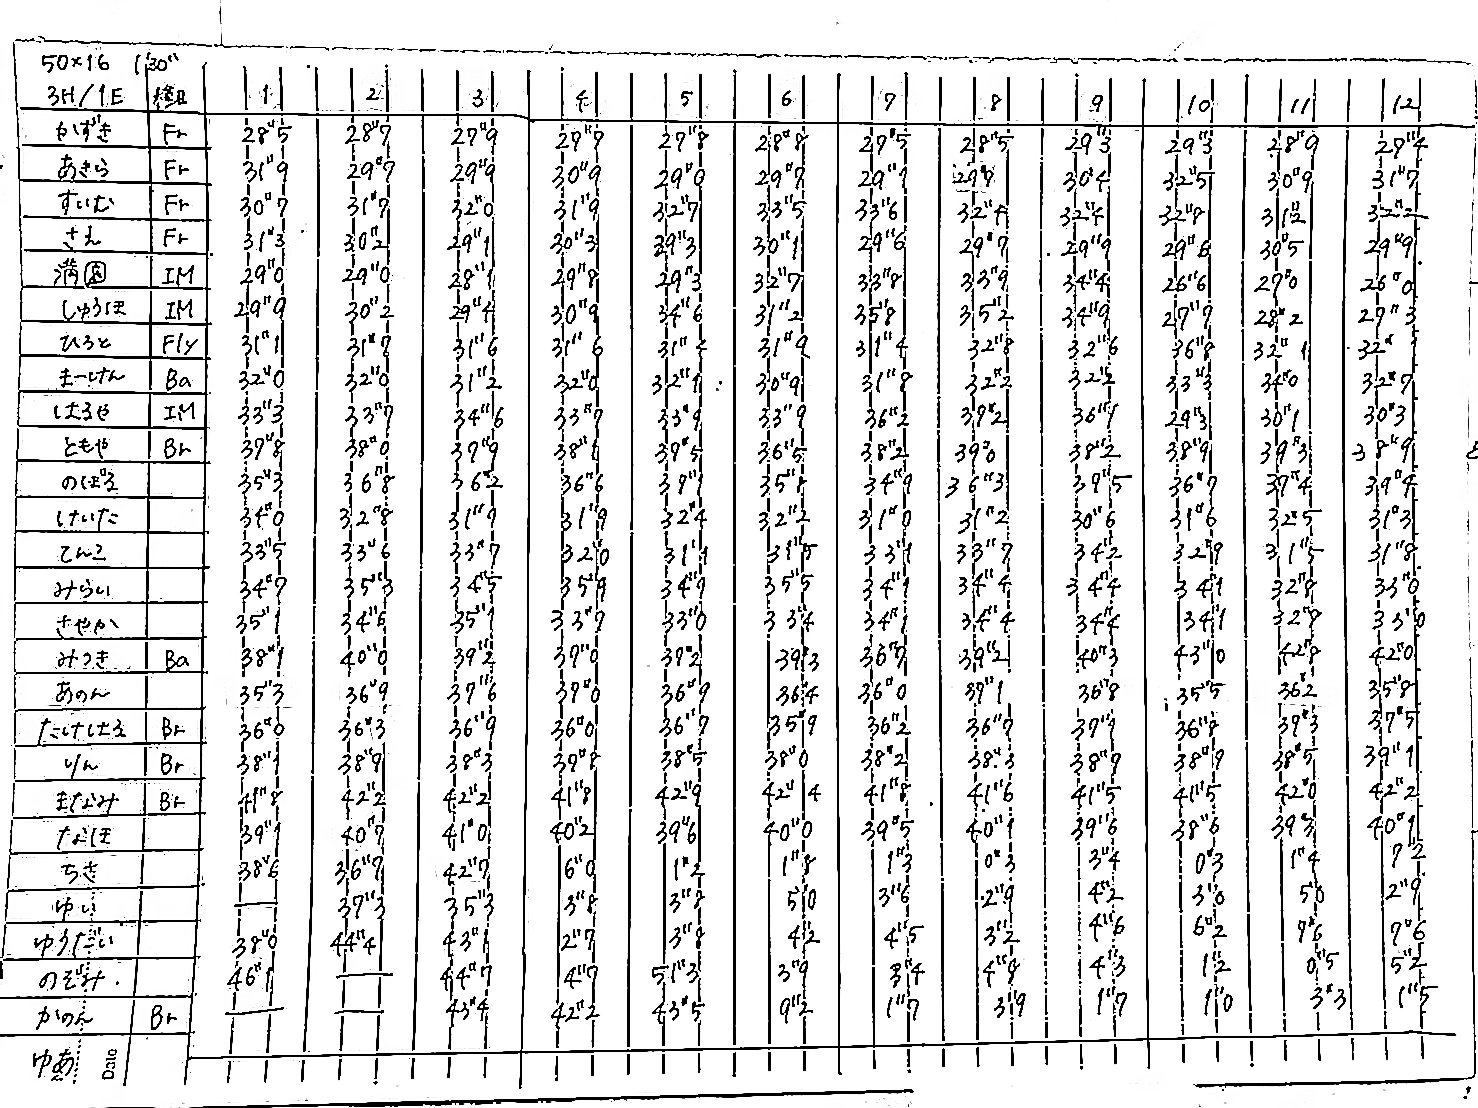 50×16 1'30"
3H/1E 種目 1 2 3 4 5 6 7 8 9 10 11 12
かずき Fr 28"5 28"7 27"9 27"7 27"8 28"8 27"5 28"5 29"3 29"3 28"9 29"4
あきら Fr 31"9 29"7 29"9 30"9 29"0 29"7 29"1 30"4 32"5 30"9 31"7
すいむ Fr 30"7 31"7 32"0 31"9 32"7 33"5 33"6 32"4 32"4 32"8 31"2 32"2
さえ Fr 31"3 30"2 29"1 30"3 29"3 30"1 29"6 29"7 29"9 29"6 30"5 29"9
溝園 IM 29"0 29"0 28"1 29"8 29"3 32"7 33"8 33"9 34"4 26"6 27"0 26"0
しゅうほ IM 29"9 30"2 29"4 30"9 34"6 31"2 35"8 35"2 34"9 27"7 28"2 27"3
ひろと Fly 31"1 31"7 31"6 31"6 31"4 31"9 31"4 32"8 32"6 36"8 32"1 32"
まーけん Ba 32"0 32"0 31"2 32"0 32"1 30"9 31"8 32"2 32"2 33"3 34"0 32"7
はるや IM 33"3 33"7 34"6 33"7 33"9 33"9 36"2 37"2 36"1 29"3 30"1 30"3
ともや Br 37"8 38"0 37"9 38"1 37"5 36"5 38"2 39"0 38"2 38"9 39"3 38"9
のぼる 35"3 36"8 36"2 36"6 37"1 35"8 34"9 36"3 37"5 36"7 37"4 39"4
けいた 34"0 32"8 31"9 31"9 32"4 32"2 31"0 31"2 30"6 31"6 32"5 31"3
てんこ 33"5 33"6 33"7 32"0 31"1 31"5 33"1 33"7 34"2 32"9 31"5 31"8
みらい 34"7 35"3 34"5 35"9 34"9 35"5 34"1 34"4 34"4 34"1 32"8 33"0
さやか 35"1 34"6 35"1 33"7 33"0 33"4 34"1 34"4 34"4 34"1 32"8 33"0
みつき Ba 38"1 40"0 39"2 37"0 37"2 39"3 36"9 39"2 40"3 43"0 42"8 42"0
あのん 35"3 36"9 37"6 37"0 36"9 36"4 36"0 37"1 36"8 35"5 36"2 35"8
たけはる Br 36"0 36"3 36"9 36"0 36"7 35"9 36"2 36"7 37"1 36"8 37"3 37"5
りん Br 38"1 38"9 38"3 39"8 38"5 38"0 38"2 38"3 38"7 38"9 38"5 39"1
まなみ Br 41"8 42"2 42"2 41"8 42"9 42"4 41"8 41"6 41"5 41"5 42"0 42"2
なほ 39"1 40"7 41"0 40"2 39"6 40"0 39"5 40"1 39"6 38"6 39"3 40"1
ちさ 38"6 36"7 42"7 6"0 1"2 1"8 1"3 0"3 3"4 0"3 1"4 7"2
ゆい — 37"3 35"3 3"8 3"8 5"0 3"6 2"9 4"2 3"0 5"0 2"9
ゆうだい 38"0 44"4 43"1 2"7 3"8 4"2 4"5 3"2 4"6 6"2 7"6 7"6
のぞみ. 46"1 — 44"7 4"7 51"3 3"9 3"4 4"8 4"3 1"2 0"5 5"2
かのん Br — — 43"4 42"2 43"5 9"2 1"7 3"9 1"7 1"0 3"3 1"5
ゆあ Date